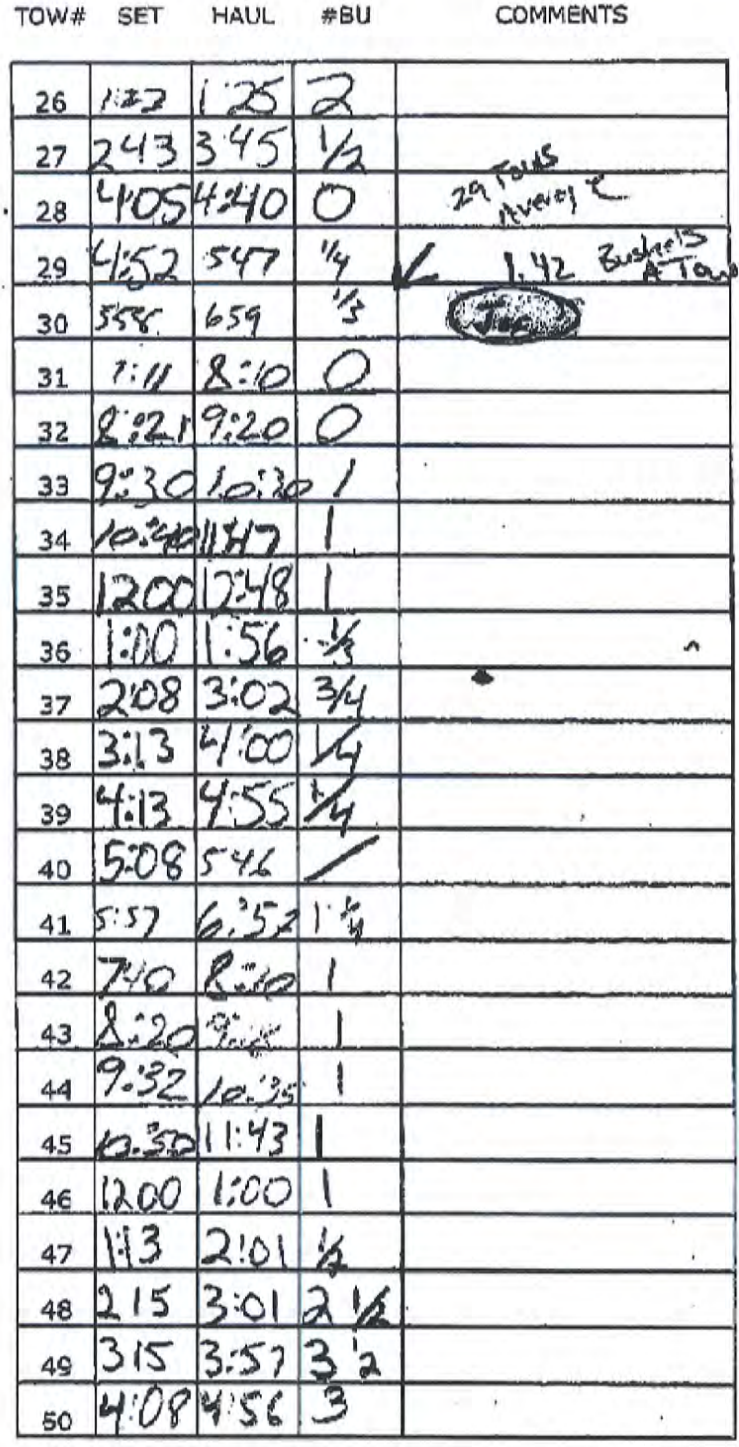 TOW# SET HAUL #BU COMMENTS
26 1:25 2
27 243 345 1/2
29 Tows
Average
28 4:05 4:40 0
29 4:52 547 1/4 1.42 Bushels
A Tow
30 558 659 1/3
31 7:11 8:10 0
32 8:21 9:20 0
33 9:30 10:30 1
34 10:40 11:47 1
35 1200 12:48 1
36 1:00 1:56 1/3
37 2:08 3:02 3/4
38 3:13 4:00 1/4
39 4:13 4:55 1/4
40 5:08 546 /
41 5:57 6:52 1 1/4
42 740 8:10 1
43 8:20 1
44 9:32 10:35 1
45 10:50 11:43 1
46 1200 1:00 1
47 1:13 2:01 1/2
48 215 3:01 2 1/2
49 315 3:57 3 1/2
50 4:08 4:56 3